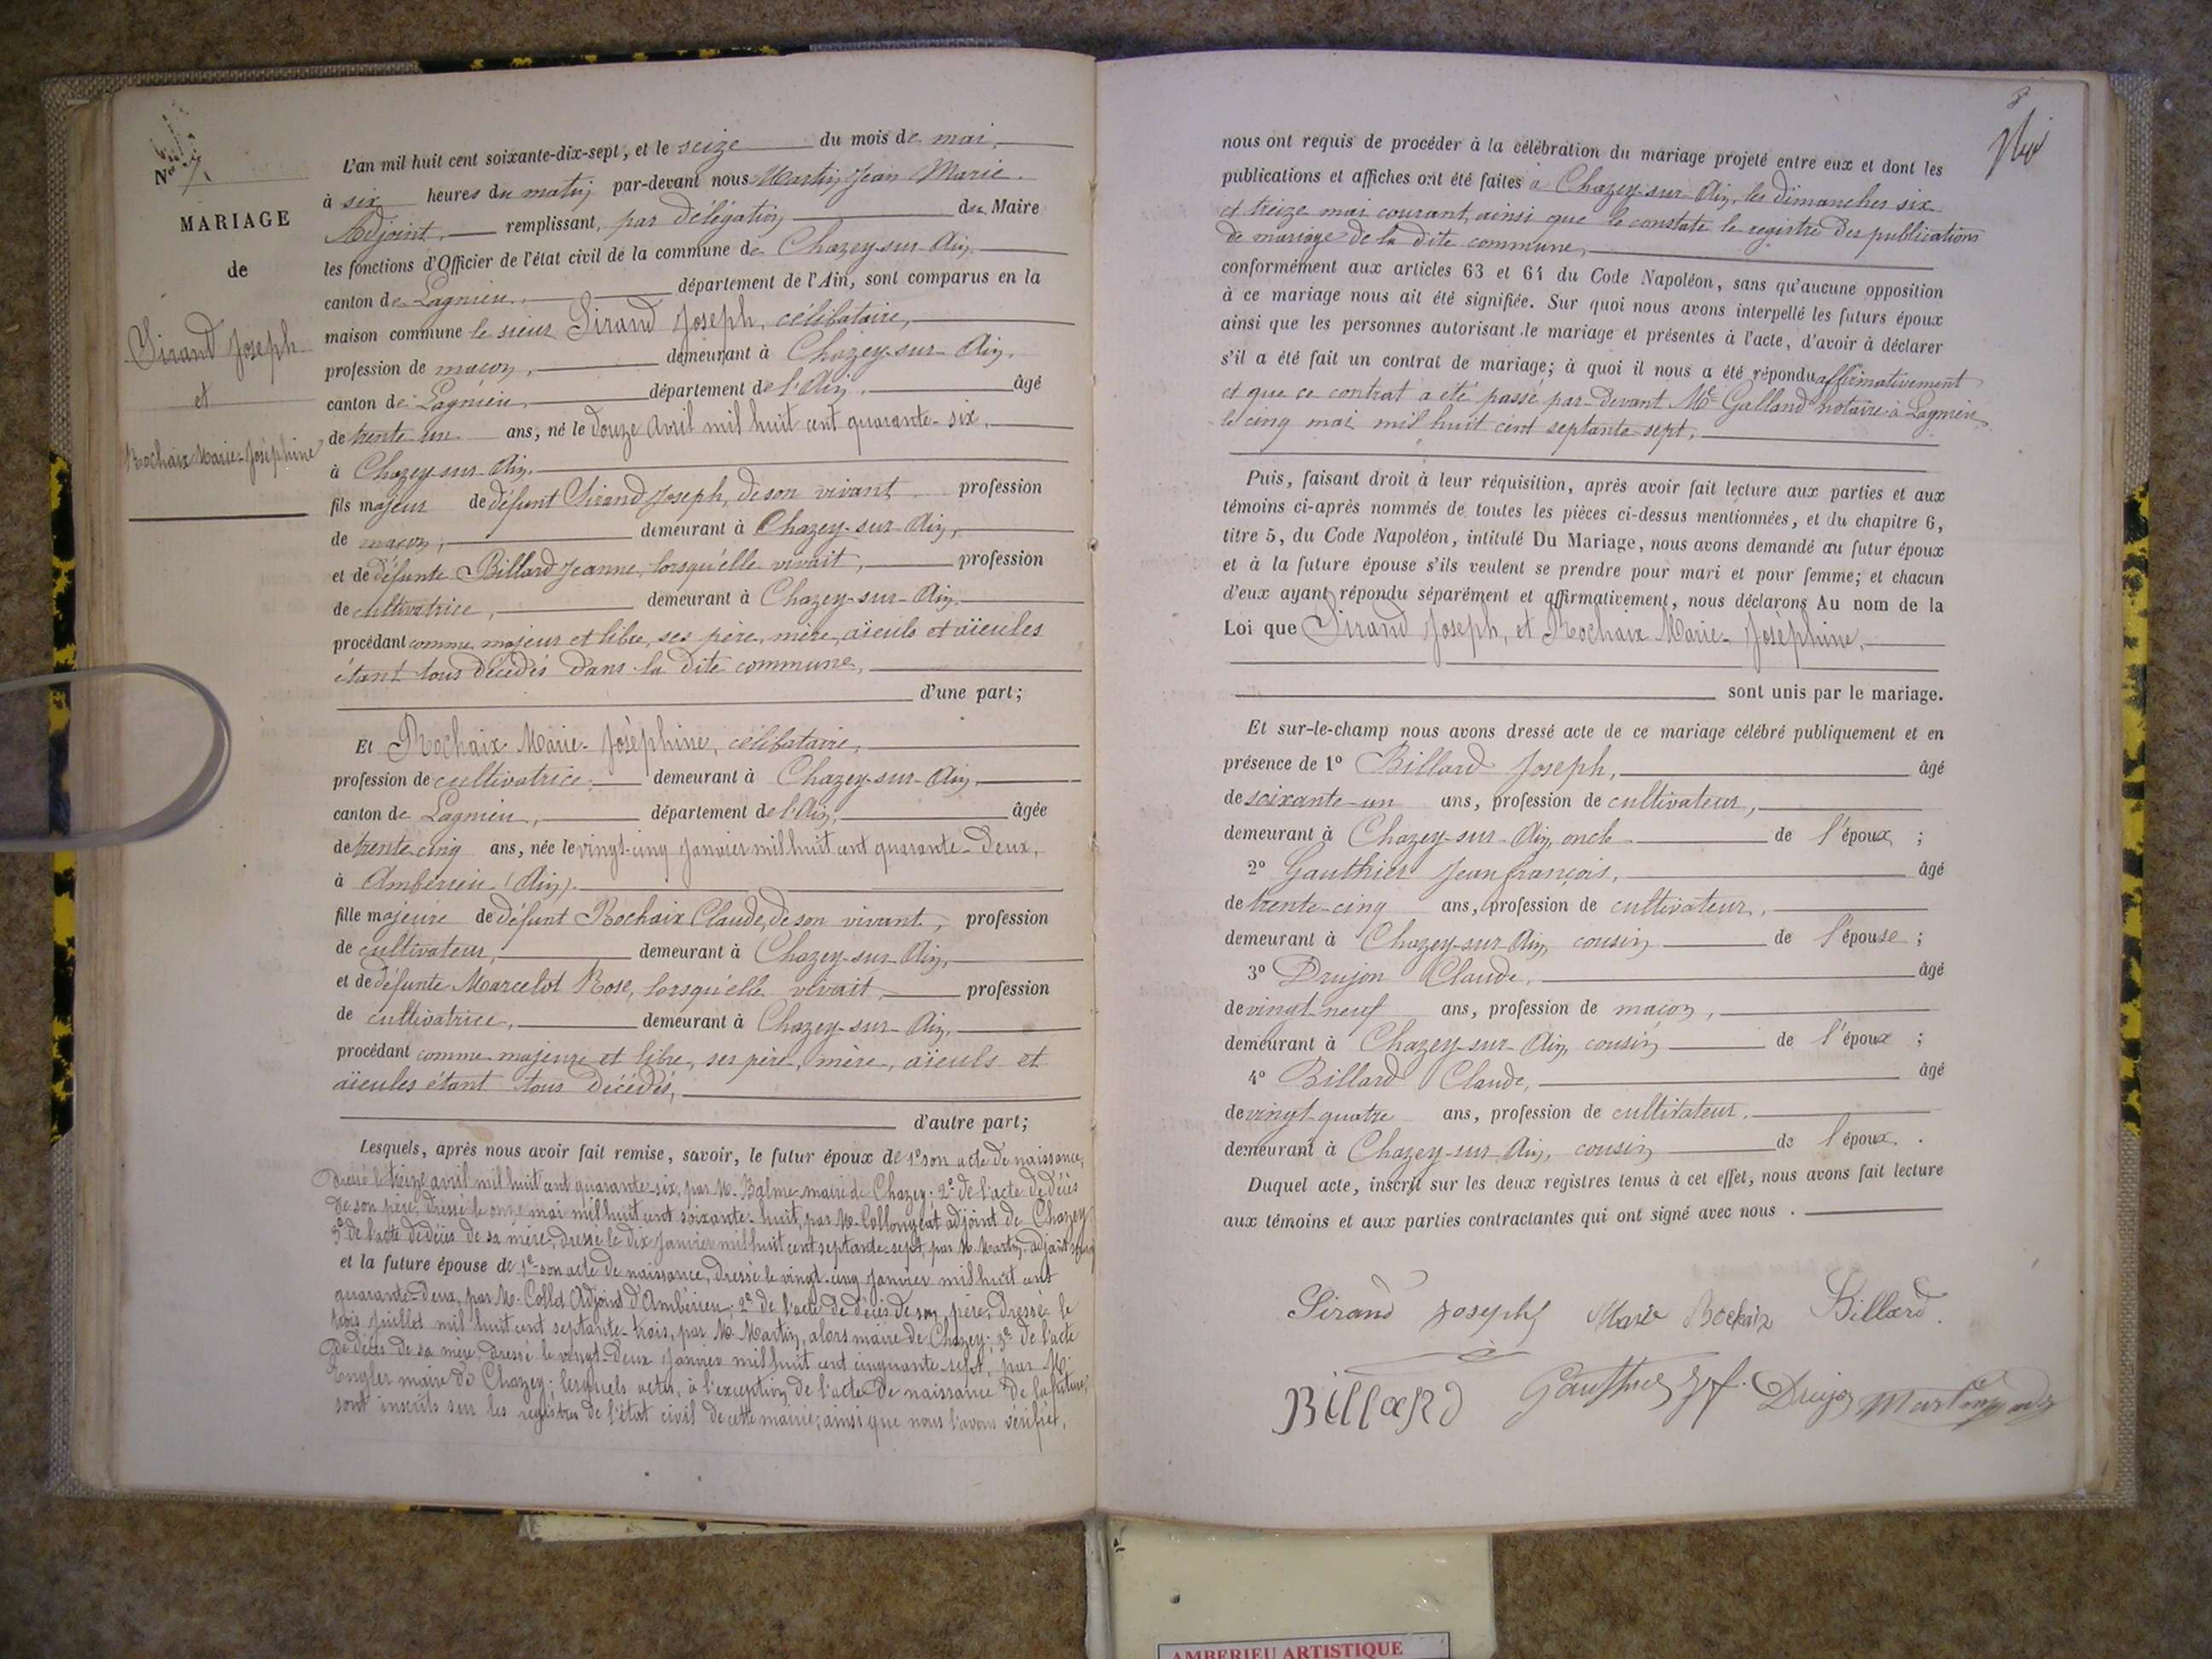 No 7
MARIAGE
de
Sirand Joseph
et
Rochaix Marie-Joséphine
L'an mil huit cent soixante-dix-sept, et le seize du mois de mai,
à six heures du matin par-devant nous Martin Jean Marie.
Adjoint, remplissant, par délégation du Maire
les fonctions d'Officier de l'état civil de la commune de Chazey-sur-Ain,
canton de Lagnieu, département de l'Ain, sont comparus en la
maison commune le sieur Sirand Joseph, célibataire,
profession de maçon, demeurant à Chazey-sur-Ain,
canton de Lagnieu, département de l'Ain, âgé
de trente-un ans, né le douze Avril mil huit cent quarante-six,
à Chazey-sur-Ain,
fils majeur de défunt Sirand Joseph, de son vivant profession
de maçon, demeurant à Chazey-sur-Ain,
et de défunte Billard Jeanne, lorsqu'elle vivait, profession
de cultivatrice, demeurant à Chazey-sur-Ain,
procédant comme majeur et libre, ses père, mère, aïeuls et aïeules
étant tous décédés dans la dite commune,
d'une part;
Et Rochaix Marie-Joséphine, célibataire,
profession de cultivatrice, demeurant à Chazey-sur-Ain,
canton de Lagnieu, département de l'Ain, âgée
de trente-cinq ans, née le vingt-cinq Janvier mil huit cent quarante-deux,
à Ambérieu (Ain).
fille majeure de défunt Rochaix Claude, de son vivant, profession
de cultivateur, demeurant à Chazey-sur-Ain,
et de défunte Marcelot Rose, lorsqu'elle vivait, profession
de cultivatrice, demeurant à Chazey-sur-Ain,
procédant comme majeure et libre, ses père, mère, aïeuls et
aïeules étant tous décédés,
d'autre part;
Lesquels, après nous avoir fait remise, savoir, le futur époux de 1° son acte de naissance,
dressé le treize avril mil huit cent quarante-six, par M. Balme maire de Chazey. 2° de l'acte de décès
de son père, dressé le onze mai mil huit cent soixante-huit, par M. Collongeat adjoint de Chazey
3° de l'acte de décès de sa mère, dressé le dix Janvier mil huit cent septante-sept, par M. Martin adjoint
et la future épouse de 1° son acte de naissance, dressé le vingt-cinq Janvier mil huit cent
quarante-deux, par M. Collet Adjoint d'Ambérieu; 2° de l'acte de décès de son père, dressé le
trois Juillet mil huit cent septante-trois, par M. Martin, alors maire de Chazey; 3° de l'acte
de décès de sa mère, dressé le vingt-deux Janvier mil huit cent cinquante-sept, par M.
Engler maire de Chazey; lesquels actes, à l'exception de l'acte de naissance de la future,
sont inscrits sur les registres de l'état civil de cette mairie, ainsi que nous l'avons vérifié,
8
nous ont requis de procéder à la célébration du mariage projeté entre eux et dont les
publications et affiches ont été faites à Chazey-sur-Ain, les dimanches six
et treize mai courant, ainsi que le constate le registre des publications
de mariage de la dite commune,
conformément aux articles 63 et 64 du Code Napoléon, sans qu'aucune opposition
à ce mariage nous ait été signifiée. Sur quoi nous avons interpellé les futurs époux
ainsi que les personnes autorisant le mariage et présentes à l'acte, d'avoir à déclarer
s'il a été fait un contrat de mariage; à quoi il nous a été répondu affirmativement
et que ce contrat a été passé par-devant Me Galland notaire à Lagnieu
le cinq mai mil huit cent septante-sept,
Puis, faisant droit à leur réquisition, après avoir fait lecture aux parties et aux
témoins ci-après nommés de toutes les pièces ci-dessus mentionnées, et du chapitre 6,
titre 5, du Code Napoléon, intitulé Du Mariage, nous avons demandé au futur époux
et à la future épouse s'ils veulent se prendre pour mari et pour femme; et chacun
d'eux ayant répondu séparément et affirmativement, nous déclarons Au nom de la
Loi que Sirand Joseph, et Rochaix Marie-Joséphine,
sont unis par le mariage.
Et sur-le-champ nous avons dressé acte de ce mariage célébré publiquement et en
présence de 1° Billard Joseph, âgé
de soixante-un ans, profession de cultivateur,
demeurant à Chazey-sur-Ain, oncle de l'époux ;
2° Gauthier Jean françois, âgé
de trente-cinq ans, profession de cultivateur,
demeurant à Chazey-sur-Ain, cousin de l'épouse ;
3° Drujon Claude, âgé
de vingt-neuf ans, profession de maçon,
demeurant à Chazey-sur-Ain, cousin de l'époux ;
4° Billard Claude, âgé
de vingt-quatre ans, profession de cultivateur,
demeurant à Chazey-sur-Ain, cousin de l'époux.
Duquel acte, inscrit sur les deux registres tenus à cet effet, nous avons fait lecture
aux témoins et aux parties contractantes qui ont signé avec nous .
Sirand Joseph Marie Rochaix Billard
Billard Gauthier J f. Drujon Martin
AMBERIEU ARTISTIQUE